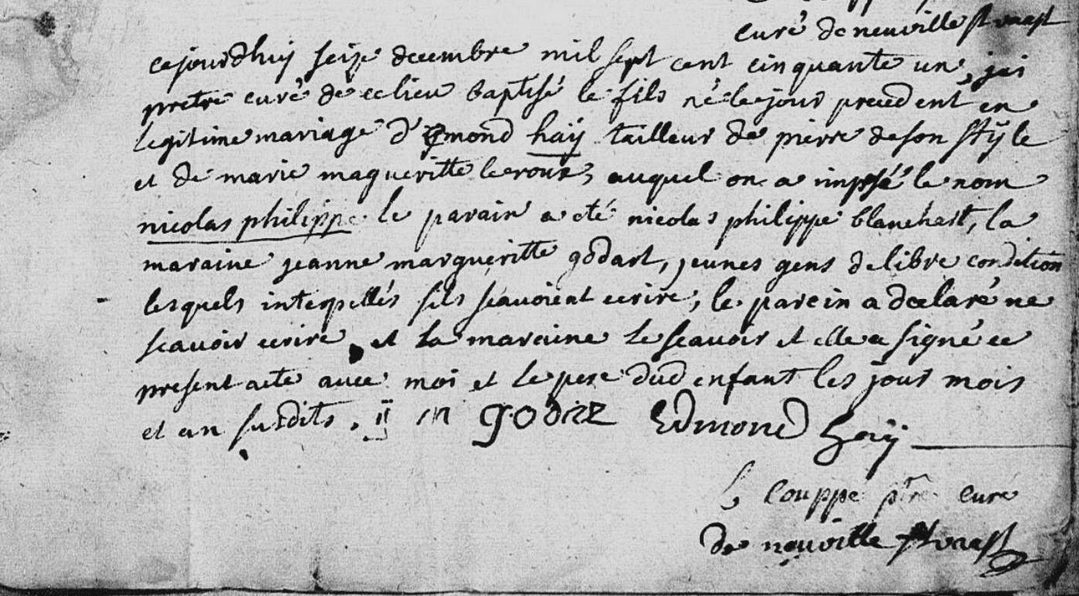 curé de neuville st vaast
cejourdhuy seize decembre mil sept cent cinquante un, jai
pretre curé de ce lieu baptisé le fils né le jour precedent en
legitime mariage d'Emond haÿ tailleur de pierre de son stÿle
et de marie magueritte leroux, auquel on a imposé le nom
nicolas philippe le parain a eté nicolas philippe blanchart, la
maraine jeanne margueritte godart, jeunes gens de libre condition
lesquels interpellés sils scavoient ecrire, le parein a declaré ne
scavoir ecrire et la mareine le scavoir et elle a signé ce
present acte avec moi et le pere dud enfant les jour mois
et an susdits. Edmond haÿ
couppe ptre curé
de neuville st vaast